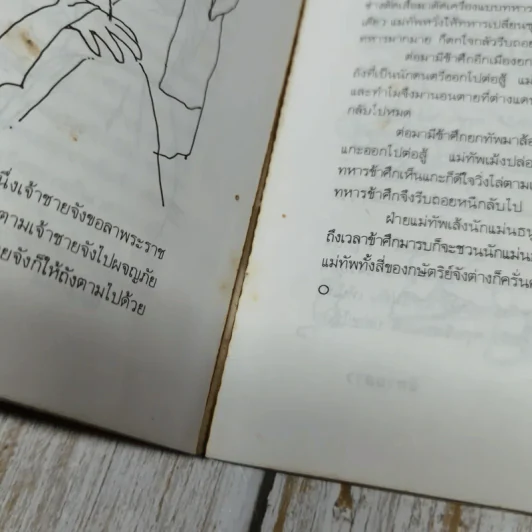 นึ่งเจ้าชายจังขอลาพระราช
ตามเจ้าชายจังไปผจญภัย
ยจังก็ให้ถังตามไปด้วย
เดียว แม่ทัพหวังให้ทหารเปลี่ยนชุ
ทหารมากมาย ก็ตกใจกลัวรีบถอย
ต่อมามีข้าศึกอีกเมืองยก
ถังที่เป็นนักดนตรีออกไปต่อสู้ แม่
และทำไมจึงมานอนตายที่ต่างแดน
กลับไปหมด
ต่อมามีข้าศึกยกทัพมาล้อ
แกะออกไปต่อสู้ แม่ทัพเม้งปล่อ
ทหารข้าศึกเห็นแกะก็ดีใจวิ่งไล่ตาม
ทหารข้าศึกจึงรีบถอยหนีกลับไป
ฝ่ายแม่ทัพเส้งนักแม่นธนู
ถึงเวลาข้าศึกมารบก็จะชวนนักแม่น
แม่ทัพทั้งสี่ของกษัตริย์จังต่างก็ครั่น